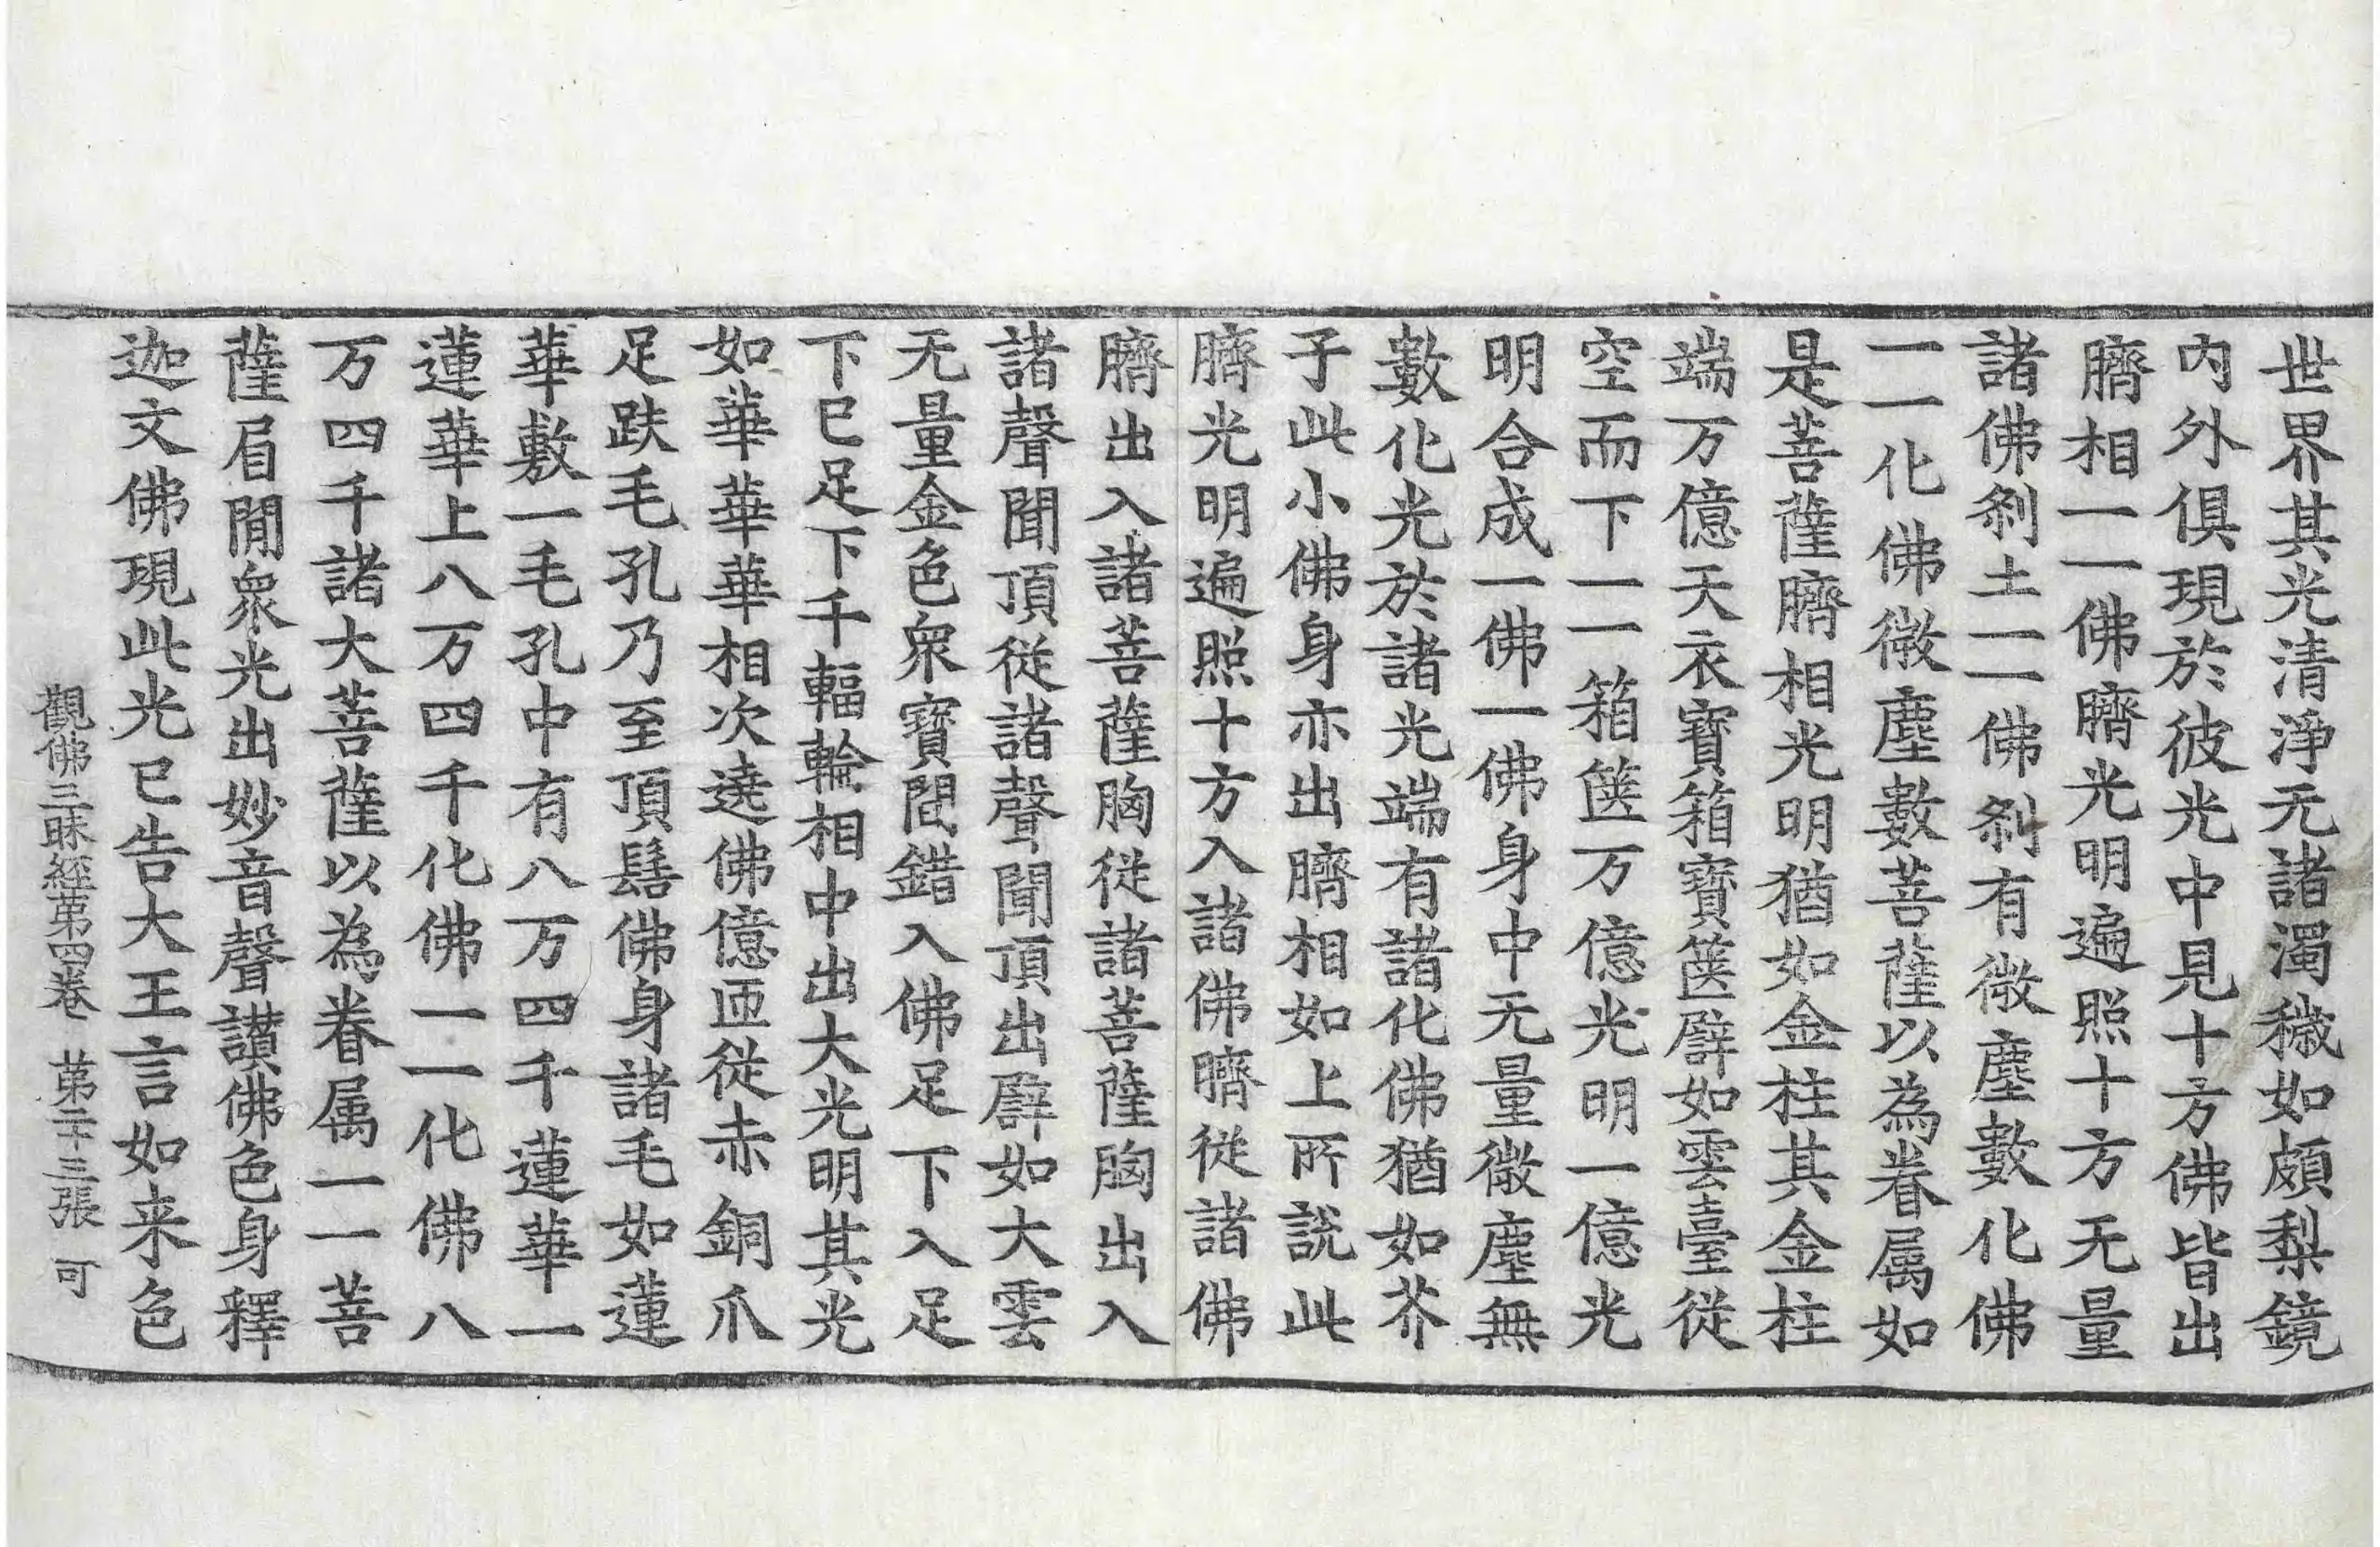 世界其光清淨无諸濁穢如頗梨鏡
内外俱現於彼光中見十方佛皆出
臍相一一佛臍光明遍照十方无量
諸佛刹土一一佛刹有微塵數化佛
一一化佛微塵數菩薩以為眷属如
是菩薩臍相光明猶如金柱其金柱
端万億天衣寶箱寶篋辟如雲臺從
空而下一一箱篋万億光明一億光
明合成一佛一佛身中无量微塵無
數化光於諸光端有諸化佛猶如芥
子此小佛身亦出臍相如上所説此
臍光明遍照十方入諸佛臍從諸佛
臍出入諸菩薩胸從諸菩薩胸出入
諸聲聞頂從諸聲聞頂出辟如大雲
无量金色衆寶間錯入佛足下入足
下已足下千輻輪相中出大光明其光
如華華華相次遶佛億匝從赤銅爪
足趺毛孔乃至頂髻佛身諸毛如蓮
華敷一毛孔中有八万四千蓮華一
蓮華上八万四千化佛一一化佛八
万四千諸大菩薩以為眷属一一菩
薩眉間衆光出妙音聲讃佛色身釋
迦文佛現此光已告大王言如来色
觀佛三昧經第四卷　第二十三張　可